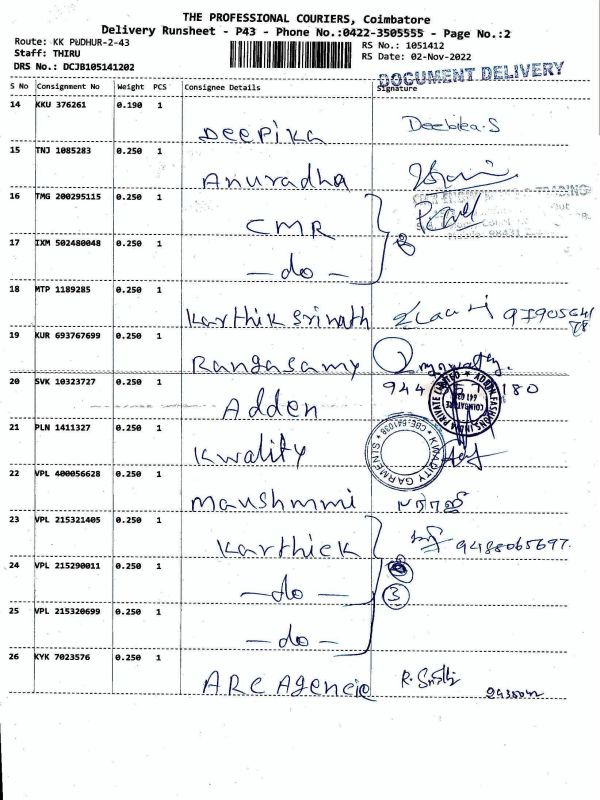 THE PROFESSIONAL COURIERS, Coimbatore
Delivery Runsheet - P43 - Phone No.:0422-3505555 - Page No.:2
Route: KK PUDHUR-2-43
RS No.: 1051412
Staff: THIRU
RS Date: 02-Nov-2022
DRS No.: DCJB105141202
DOCUMENT DELIVERY
S No Consignment No Weight PCS Consignee Details Signature
14 KKU 376261 0.190 1
Deepika
15 TNJ 1085283 0.250 1
Anuradha
16 TMG 200295115 0.250 1
CMR
17 IXM 502480048 0.250 1
— do —
18 MTP 1189285 0.250 1
Karthik Srinath
19 KUR 693767699 0.250 1
Rangasamy
20 SVK 10323727 0.250 1
Adden
21 PLN 1411327 0.250 1
Kwality
KWALITY GARMENTS * CBE-641038 *
22 VPL 400056628 0.250 1
Maushmmi
23 VPL 215321405 0.250 1
Karthick 9488065697.
24 VPL 215290011 0.250 1
— do — 3
25 VPL 215320699 0.250 1
— do —
26 KYK 7023576 0.250 1
ARC Agencie